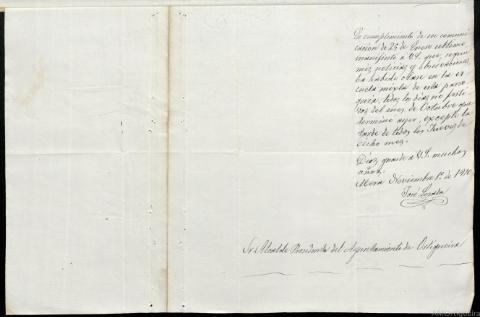 En cumplimiento de su comuni-
cación de 25 de Enero último
manifiesto a V.S. que, según
mis noticias y observaciones,
ha habido clase en la es-
cuela mixta de esta parro-
quia, todos los días no festi-
vos del mes de Octubre que
terminó ayer, excepto la
tarde de todos los Jueves de
dicho mes.
Dios guarde a V.S. muchos
años.
Mera Noviembre 1º de 1910.
José
Sr Alcalde Presidente del Ayuntamiento de Ortigueira